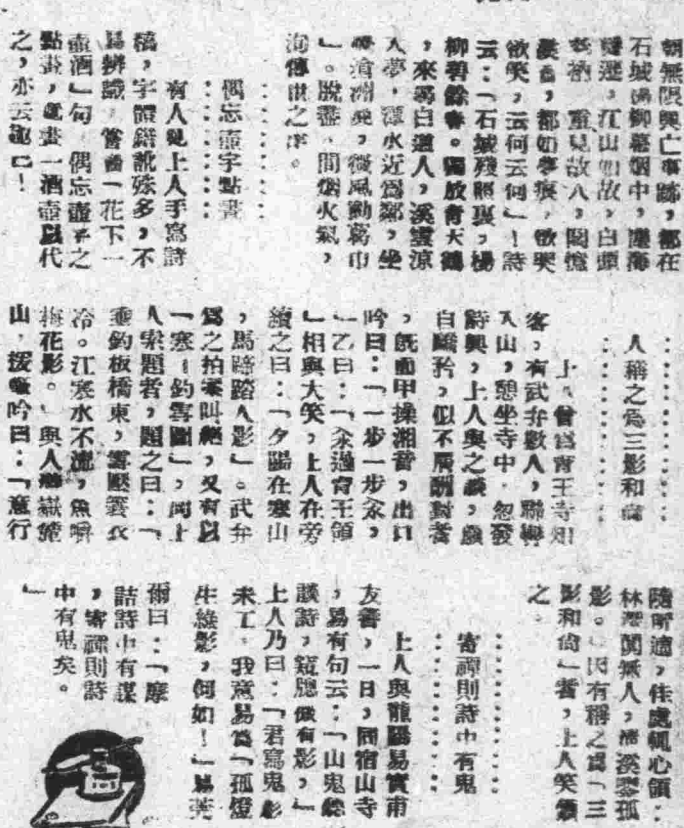 朝無限興亡事跡，都在
石城楊柳暮烟中，塵海
遷，江山如故，白頭
重見故人，闊懷
都如夢痕，欲哭
欲笑，云何云何」！詩
云：「石城殘照裏，楊
柳碧餘春。獨放青天鶴
，來尋白道人，溪雲涼
入夢，潭水近為鄰，坐
滄洲晚，微風動葛巾
」。脫盡人間烟火氣，
洵傳世之作。
偶忘壺字點畫
有人見上人手寫詩
稿，字體錯訛殊多，不
易辨識，嘗書「花下一
壺酒」句，偶忘壺字之
點畫，乃畫一酒壺以代
之，亦云趣已！
人稱之為三影和尚
上人曾為育王寺知
客，有武弁數人，聯轡
入山，憩坐寺中，忽發
詩興，上人與之談，頗
自驕矜，似不屑酬對者
，既而甲操湘音，出口
吟曰：「一步一步汆，
」乙曰：「汆過育王嶺
」相與大笑，上人在旁
續之曰：「夕陽在寒山
，馬蹄踏人影」。武弁
為之拍案叫絕，又有以
「寒江釣雪圖」，向上
人索題者，題之曰：「
垂釣板橋東，雪壓簑衣
冷。江寒水不流，魚嚼
梅花影。」與人遊嶽麓
山，援筆吟曰：「意行
隨所適，佳處輒心領：
林深闃無人，清溪寥孤
影。」因有稱之為「三
影和尚」者，上人笑頷
之。
寄禪則詩中有鬼
上人與龍陽易實甫
友善，一日，同宿山寺
，易有句云：「山鬼聽
談詩，窺牕微有影，」
上人乃曰：「君寫鬼影
未工，我意易為「孤燈
生綠影，何如！」易莞
爾曰：「摩
詰詩中有
，寄禪則詩
中有鬼矣。
」